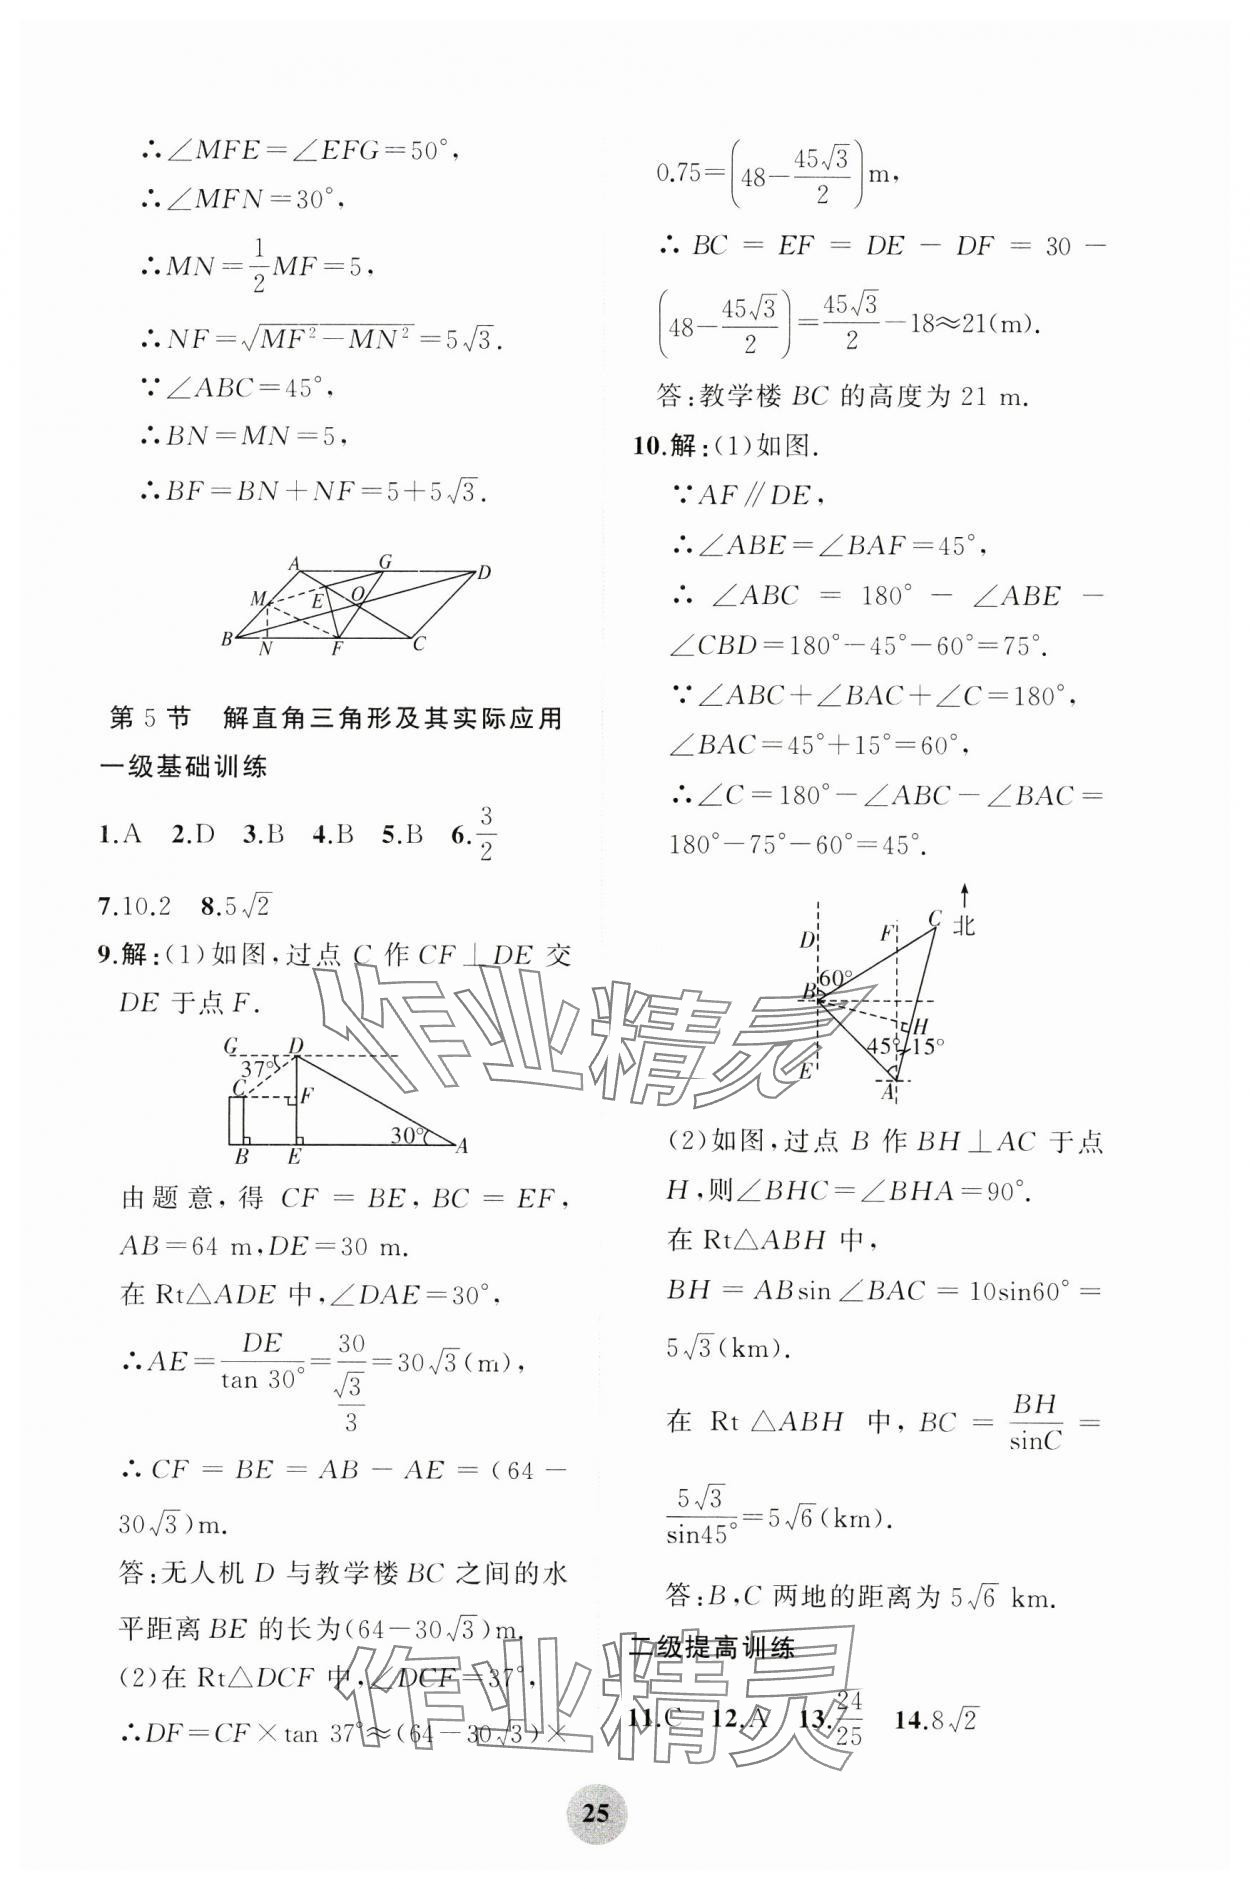 ∴∠MFE=∠EFG=50°,
∴∠MFN=30°,
∴MN=\frac{1}{2}MF=5,
∴NF=√(MF²-MN²)=5√3.
∵∠ABC=45°,
∴BN=MN=5,
∴BF=BN+NF=5+5√3.
A G D
M E O
B N F C
第5节 解直角三角形及其实际应用
一级基础训练
1.A 2.D 3.B 4.B 5.B 6.\frac{3}{2}
7.10.2 8.5√2
9.解:(1)如图,过点 C 作 CF⊥DE 交
DE 于点 F.
G D
37°
C F
30°
B E A
由题意,得 CF=BE,BC=EF,
AB=64 m,DE=30 m.
在 Rt△ADE 中,∠DAE=30°,
∴AE=\frac{DE}{tan 30°}=\frac{30}{\frac{√3}{3}}=30√3(m),
∴CF=BE=AB-AE=(64-
30√3)m.
答:无人机 D 与教学楼 BC 之间的水
平距离 BE 的长为(64-30√3)m.
(2)在 Rt△DCF 中,∠DCF=37°,
∴DF=CF×tan 37°≈(64-30√3)×
0.75=(48-\frac{45√3}{2})m,
∴BC=EF=DE-DF=30-
(48-\frac{45√3}{2})=\frac{45√3}{2}-18≈21(m).
答:教学楼 BC 的高度为 21 m.
10.解:(1)如图.
∵AF∥DE,
∴∠ABE=∠BAF=45°,
∴∠ABC=180°-∠ABE-
∠CBD=180°-45°-60°=75°.
∵∠ABC+∠BAC+∠C=180°,
∠BAC=45°+15°=60°,
∴∠C=180°-∠ABC-∠BAC=
180°-75°-60°=45°.
D F C 北
60°
B
H
45° 15°
E
A
(2)如图,过点 B 作 BH⊥AC 于点
H,则∠BHC=∠BHA=90°.
在 Rt△ABH 中,
BH=ABsin∠BAC=10sin60°=
5√3(km).
在 Rt△ABH 中,BC=\frac{BH}{sinC}=
\frac{5√3}{sin45°}=5√6(km).
答:B,C 两地的距离为 5√6 km.
二级提高训练
11.C 12.A 13.\frac{24}{25} 14.8√2
作业精灵
作业精灵
25